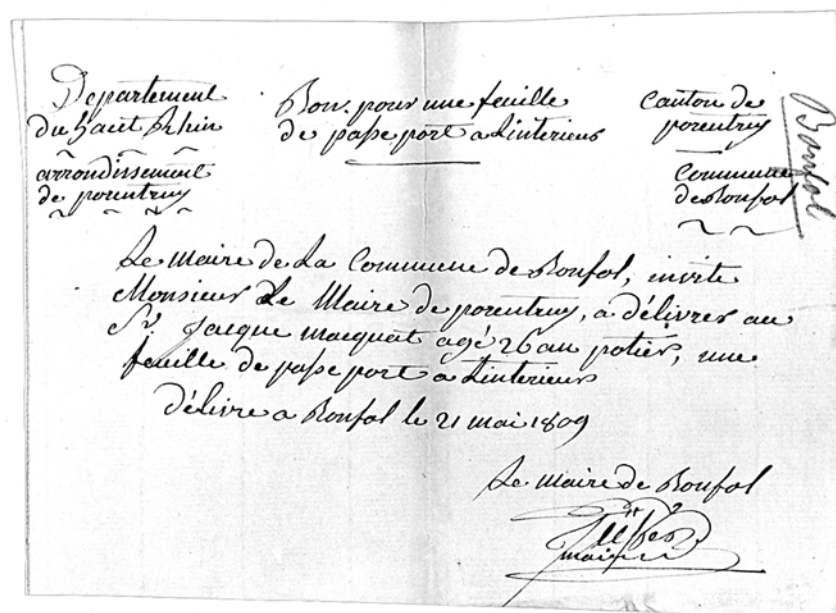 Departement
du haut Rhin
arrondissement
de porentruy
Bon. pour une feuille
de passe port a Linterieur
Canton de
porentruy
Commune
de Bonfol
Bonfol
Le Maire de La Commune de Bonfol, invite
Monsieur Le Maire de porentruy, a délivrer au
Sr. Jacque macquat agé 26 an potier, une
feuille de passe port a Linterieur
Délivre a Bonfol le 21 mai 1809
Le Maire de Bonfol
maire